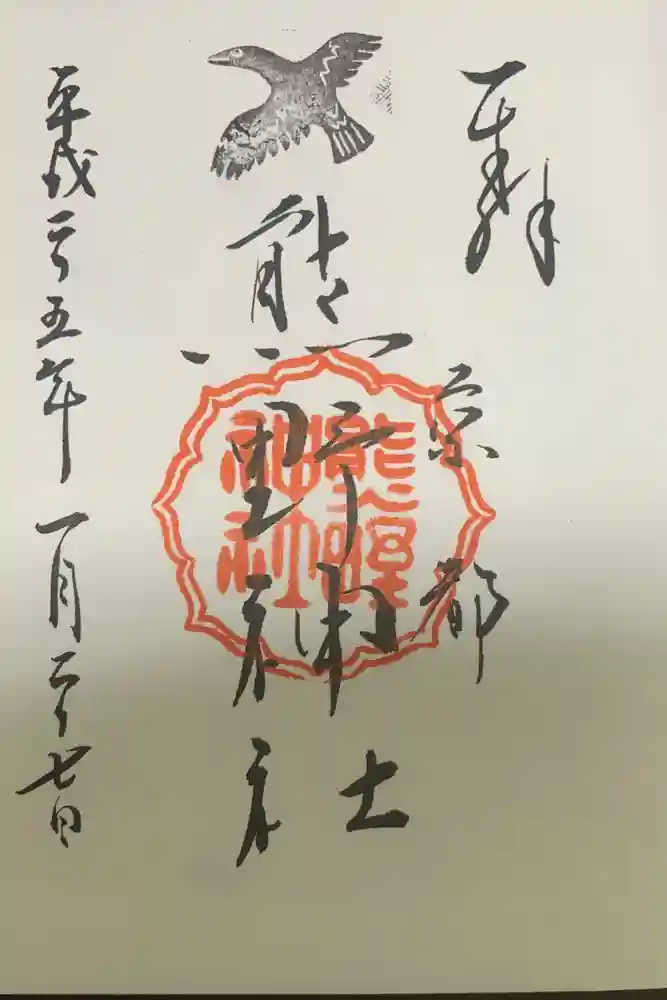 奉拝
京都
熊野神社
熊野神社
平成二十五年一月二十七日